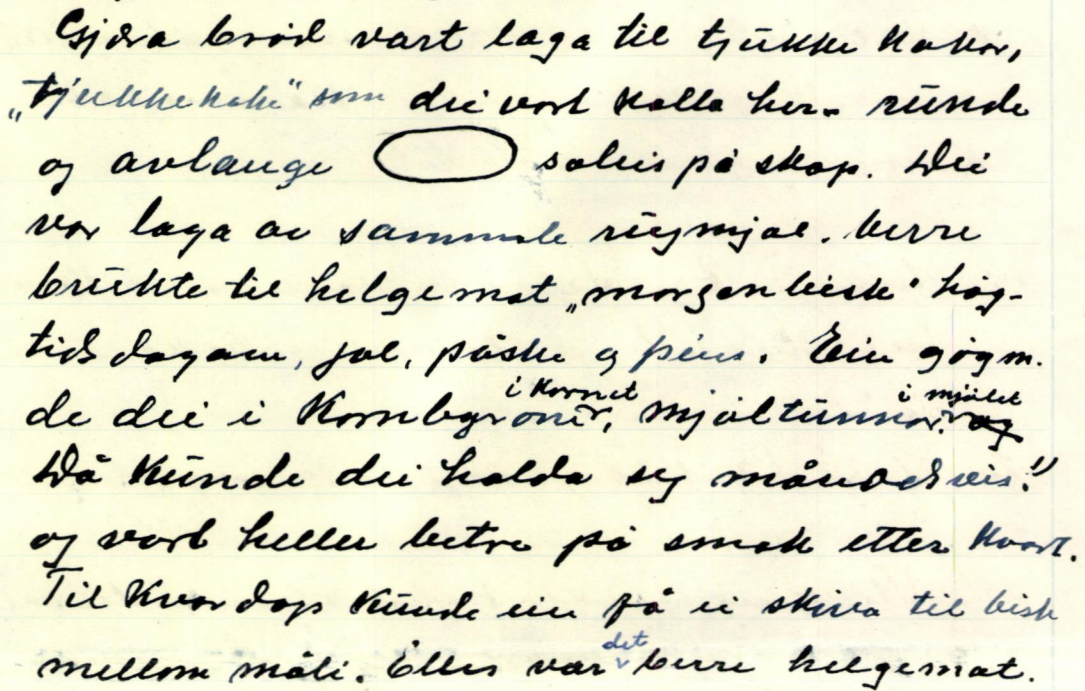 Gjæra brød vart laga til tjukke kakor,
„Tjukkekake" som dei vart kalla her. runde
og avlange soleis på skap. Dei
var laga av sammale rugmjøl. berre
brukte til helgemat „morgonbisk" høg-
tidsdagane, jol, påske og pins. Ein gøym-
de dei i Kornbyroner, i Kornet mjøltunnor. i mjølet
Då Kunde dei halda seg månadsvis!"
og vart heller betre på smak etter kvart.
Til Kvardags Kunde ein få ei skiva til bisk
mellom måli. Elles var det berre helgemat.